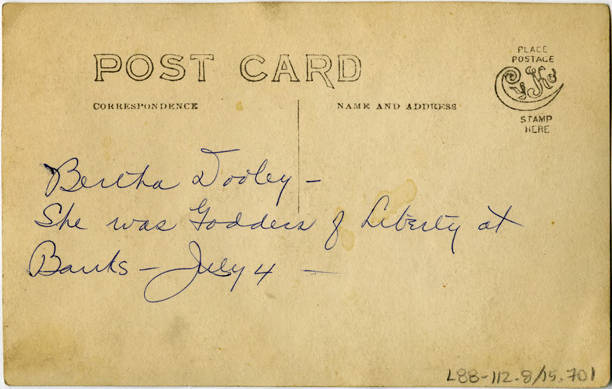 POST CARD
CORRESPONDENCE
NAME AND ADDRESS
PLACE
POSTAGE
CYKO
STAMP
HERE
Bertha Dooley –
She was Goddess of Liberty at
Banks – July 4 –
L88-112.8/15.701